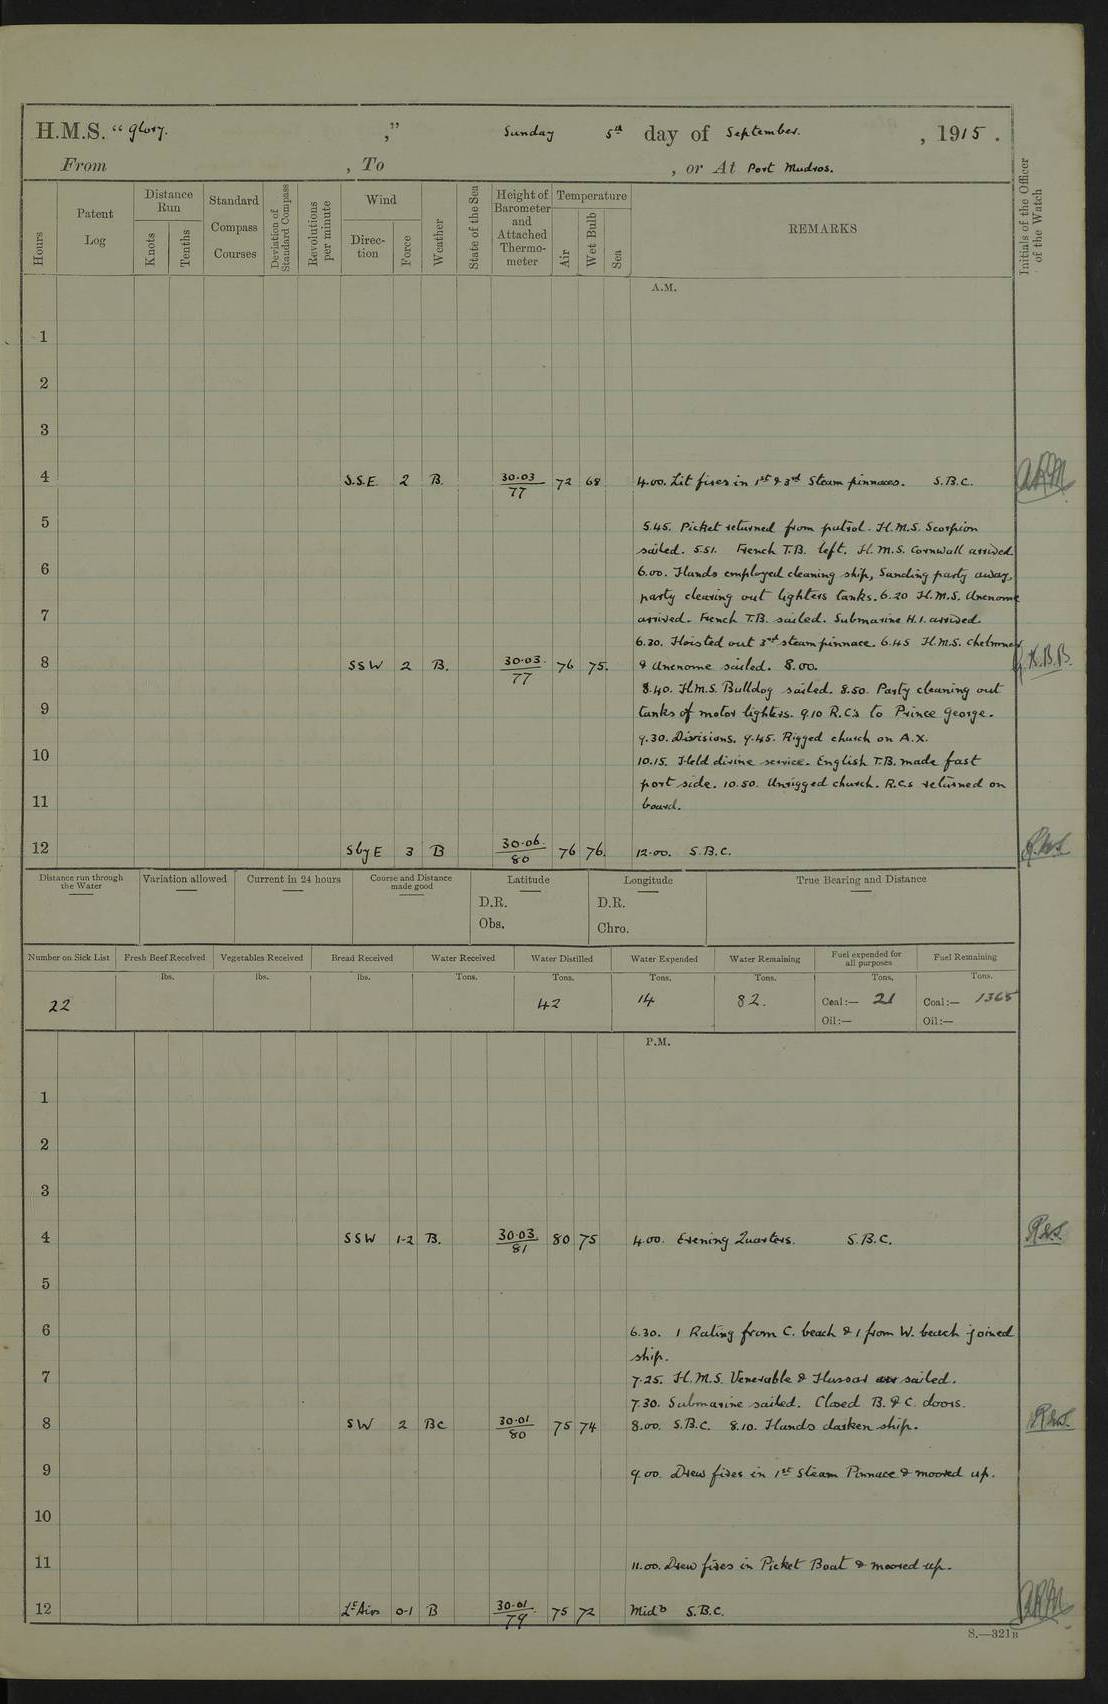 H.M.S. "Glory. ," Sunday 5th day of September. , 1915 .
From , To , or At Port Mudros.
Hours
Patent Log
Distance Run
Knots
Tenths
Standard Compass Courses
Deviation of Standard Compass
Revolutions per minute
Wind
Direc-tion
Force
Weather
State of the Sea
Height of Barometer and Attached Thermo-meter
Temperature
Air
Wet Bulb
Sea
REMARKS
Initials of the Officer of the Watch
A.M.
1
2
3
4 S.S.E. 2 B. 30.03/77 72 68 4.00. Lit fires in 1st & 3rd Steam pinnaces. S.B.C.
5 5.45. Picket returned from patrol. H.M.S. Scorpion
sailed. 5.51. French T.B. left. H.M.S. Cornwall arrived
6 6.00. Hands employed cleaning ship, Sanding party away,
party clearing out lighters tanks. 6.20 H.M.S. Anenome
7 arrived. French T.B. sailed. Submarine H.1. arrived.
6.30. Hoisted out 3rd steam pinnace. 6.45 H.M.S. Chelmmer
8 SSW 2 B. 30.03./77 76 75. & Anenome sailed. 8.00.
8.40. H.M.S. Bulldog sailed. 8.50. Party cleaning out
9 tanks of motor lighters. 9.10 R.C's to Prince George.
9.30. Divisions. 9.45. Rigged church on A.X.
10 10.15. Held divine service. English T.B. made fast
port side. 10.50. Unrigged church. R.C.s returned on
11 board.
12 S by E 3 B 30.06./80 76 76. 12.00. S.B.C.
Distance run through the Water
Variation allowed
Current in 24 hours
Course and Distance made good
Latitude
D.R.
Obs.
Longitude
D.R.
Chro.
True Bearing and Distance
Number on Sick List Fresh Beef Received Vegetables Received Bread Received Water Received Water Distilled Water Expended Water Remaining Fuel expended for all purposes Fuel Remaining
lbs. lbs. lbs. Tons. Tons. Tons. Tons. Tons. Tons.
22 42 14 82. Coal:— 21 Coal:— 1365
Oil:— Oil:—
P.M.
1
2
3
4 SSW 1-2 B. 30.03./81 80 75 4.00. Evening Quarters. S.B.C.
5
6 6.30. 1 Rating from C. beach & 1 from W. beach joined
ship.
7 7.25. H.M.S. Venerable & Hussar sailed.
7.30. Submarine sailed. Closed B. & C. doors.
8 SW 2 BC 30.01/80 75 74 8.00. S.B.C. 8.10. Hands darken ship.
9 9.00. Drew fires in 1st Steam Pinnace & moored up.
10
11 11.00. Drew fires in Picket Boat & moored up.
12 Lt Airs 0-1 B 30.01./79 75 72 Midt S.B.C.
S.—321B